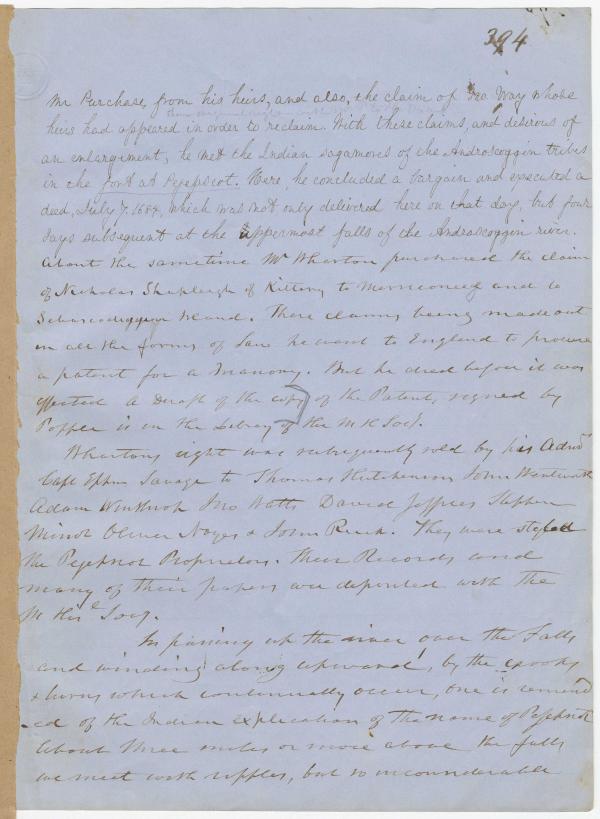 394
Mr Purchase, from his heirs, and also, the claim of Geo. Way whose
heirs had appeared in order to reclaim. With these claims, and desirous of
an enlargement, he met the Indian sagamores of the Androscoggin tribes
in the fort at Pejepscot. Here, he concluded a bargain and executed a
deed, July 7. 1684, which was not only delivered here on that day, but four
days subsequent at the uppermost falls of the Androscoggin river.
About the sametime Mr Wharton purchased the claim
of Nicholas Shapleigh of Kittery to Merriconeeg and to
Sebascodiggin Island. These claims being made out
in all the forms of Law he went to England to procure
a patent for a Manony. But he died before it was
effected A Draft of the copy of the Patent, signed by
Popple is in the Library of the M H Socy.
Whartons right was subsequently sold by his Admr
Capt Ephm Savage to Thomas Hutchinson John Wentworth
Adam Winthrop Jno Watts David Jeffries Stephen
Minot Oliver Noyes & John Ruck. They were styled
the Pejepscot Proprietors. Their Records and
many of their papers are deposited with the
M Hise Socy.
In passing up the river over the Falls
and winding along upward, by the crooks
& turns which continually occur, one is remind
-ed of the Indian explication of the name of Pejepscot
About three miles or more above the falls
we meet with ripples, but so inconsiderable